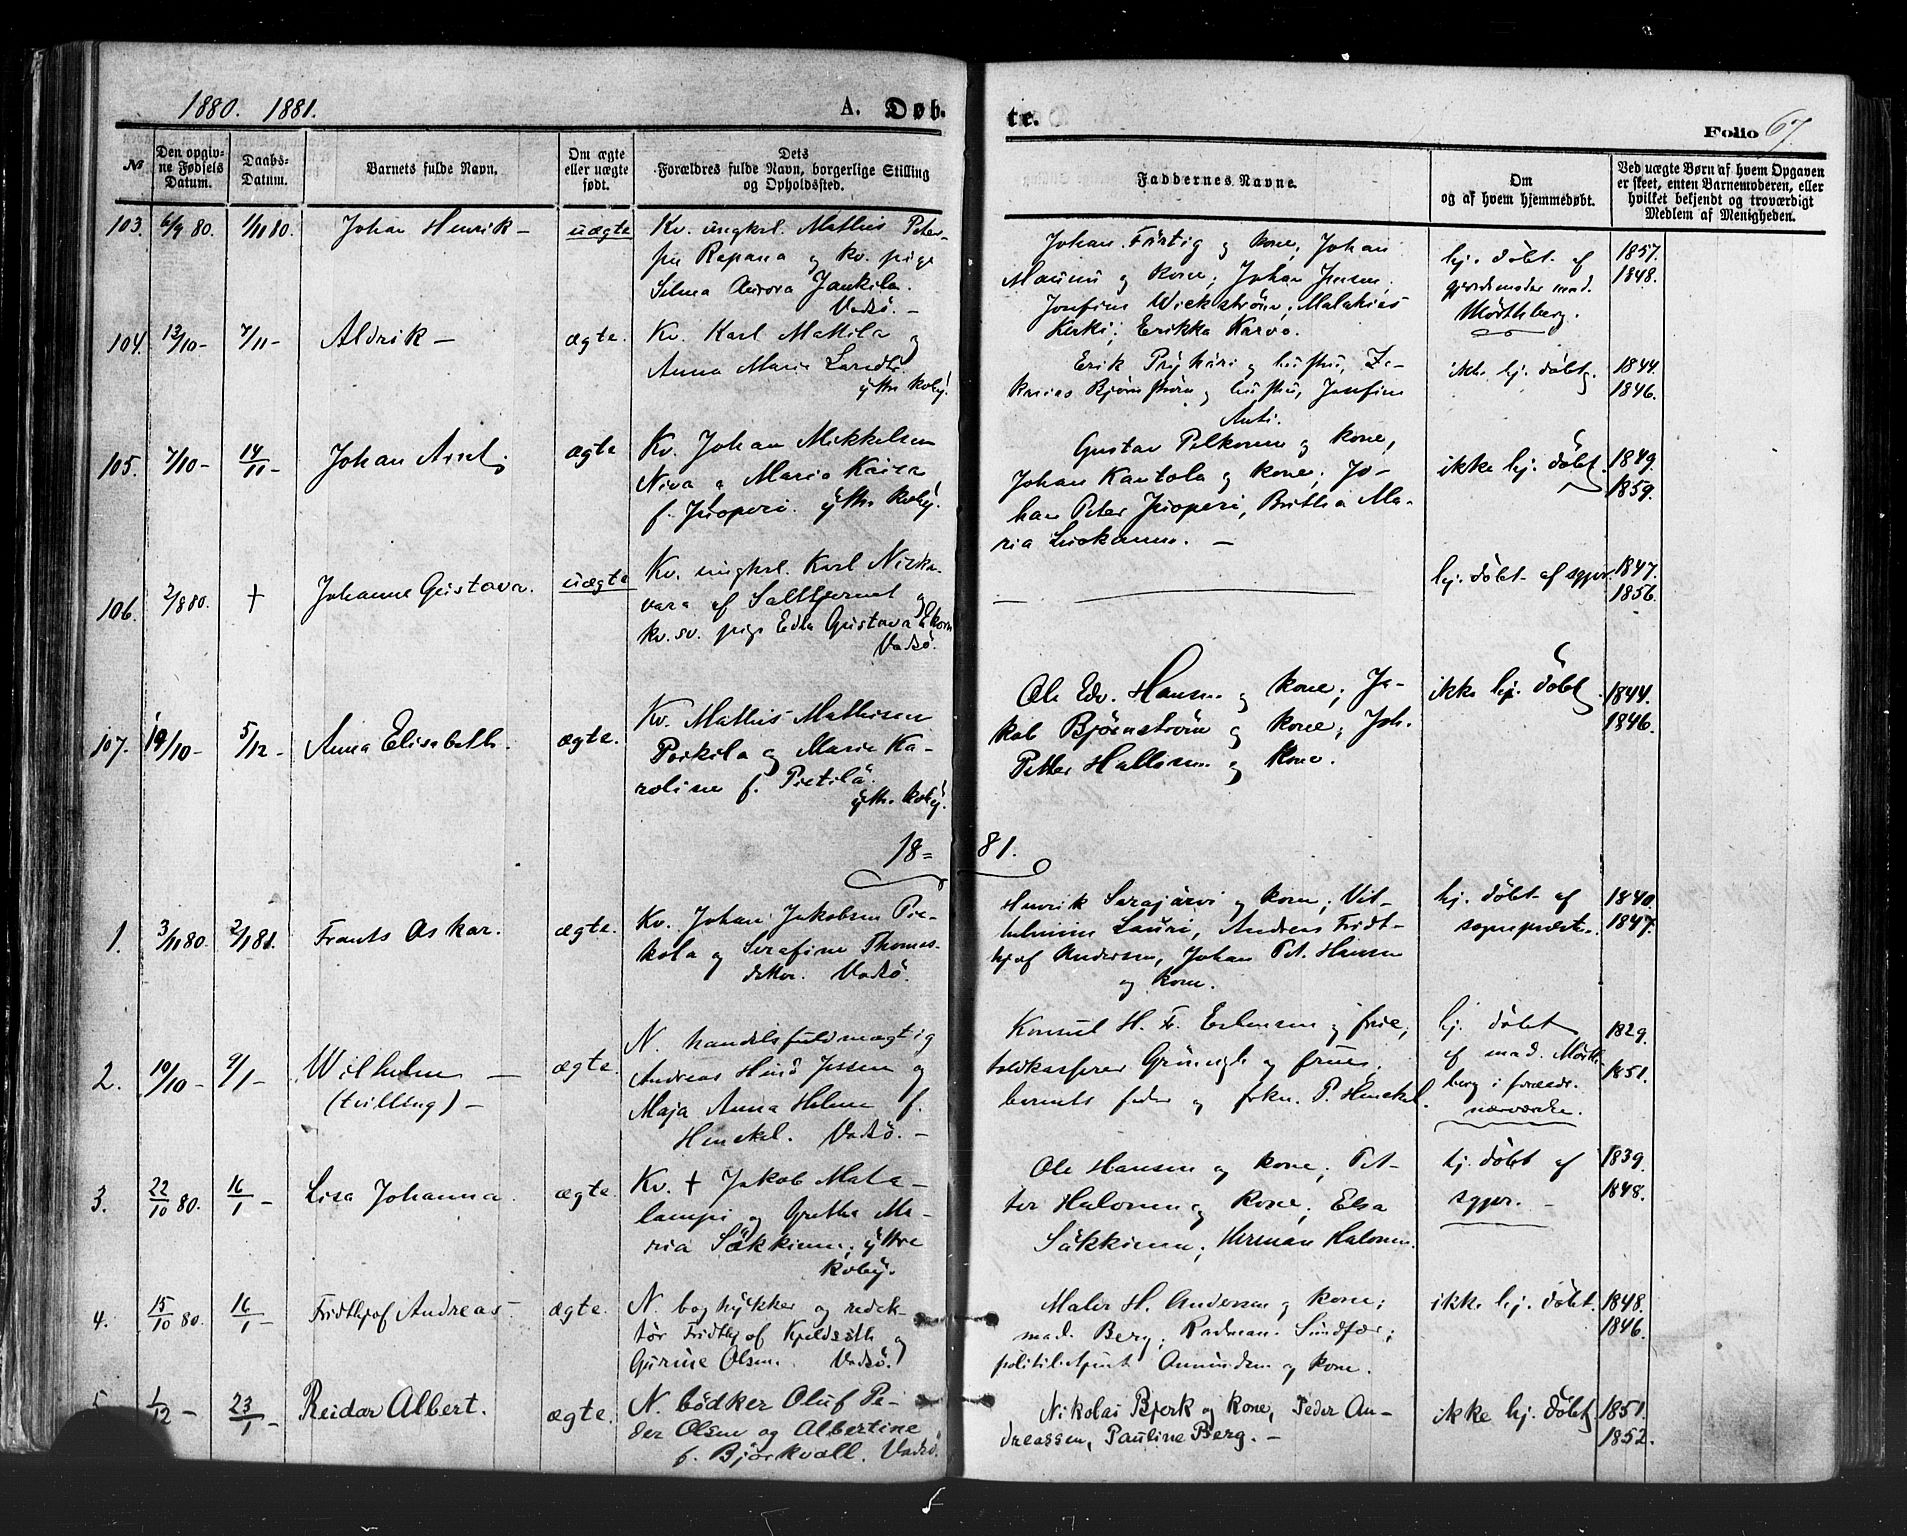 1880. 1881.
A. Døb-
te.
Folio 67
№
Den opgiv-
ne Fødsels
Datum.
Daabs-
Datum.
Barnets fulde Navn.
Om ægte
eller uægte
født.
Dets
Forældres fulde Navn, borgerlige Stilling
og Opholdssted.
Faddernes Navne.
Om
og af hvem hjemmedøbt.
Ved uægte Børn af hvem Opgaven
er skeet, enten Barnemoderen, eller
hvilket bekjendt og troværdigt
Medlem af Menigheden.
103. 6/9 80. 1/11 80. Johan Henrik - uægte
Kv. ungkrl. Mathis Peter-
sen Rapana og kv. pige
Selma Aurora Jankila.
Vadsö. -
Johan Fürtig og kone, Johan
Maunu og kone; Johan Jensen;
Josefine Wickström, Malakias
Kerki; Erikka Karvo.
hj. döbt af
gjordemoder mad.
Mörthberg.
1857.
1848.
104. 13/10 - 7/11 - Aldrik - ægte.
Kv. Karl Mattila og
Anna Maria
ytre kvby.
Erik og hustru, Za-
karias Bjørnstrøm og hustru, Josefine
Anti.
ikke hj. döbt
1844.
1846.
105. 7/10 - 14/11 - Johan Axel. ægte
Kv. Johan Mikkelsen
Niva o Maria Kaisa
f. Juoperi. ytre kvby.
Gustav Pelkonen og kone,
Johan Kantola og kone, Jo-
han Peter Juoperi, Britha Ma-
ria
ikke hj. döbt.
1849.
1859.
106. 2/8 80. † Johanne Gustava. uægte
Kv. ungkrl. Karl Niska-
vara af Saltfjernet og
kv. sv. pige Edla Gustava
Vadsö.
hj. döbt af sgpr.
1847.
1856.
107. 19/10 - 5/12 - Anna Elisabeth. ægte.
Kv. Mathis Mathisen
Porkila og Maria Ka-
roline f. Pietilä.
ytre. kvby.
Ole Edv. Hansen og kone, Ja-
kob Bjørnstrøm og kone; Joh.
Petter Hallonen og kone.
ikke hj. döbt.
1844.
1846.
18= 81.
1. 3/11 80. 2/1 81. Frants Oskar. ægte.
Kv. Johan Jakobsen Pie-
kola og Serafine Thomas-
datter. Vadsö.
Henrik Sarajärvi og kone, Vil-
helmine Lauri, Andreas Fridt-
hjof Andersen, Johan Pet. Hansen
og kone.
hj. döbt af
sognepræsten.
1840.
1847.
2. 10/10 - 9/1 - Wilhelm -
(tvilling) - ægte.
N. handelsfuldmægtig
Andreas Jessen og
Maja Anna Helene f.
Henckel. Vadsö. -
Konsul H. Fr. Esbensen og frue,
toldkasserer Grünvgh og frue,
barnets fader og frkn. P. Henckel.
hj. döbt
af mad. Mörth-
berg i forældr.
nærværelse.
1829.
1851.
3. 22/10 80. 16/1 - Lisa Johanna. ægte.
Kv. † Jakob Mata-
lampi og Gretha Ma-
ria Säkkinen, ytre
kvby.
Ole Hansen og kone, Pet-
ter Halonen og kone, Elsa
Säkkinen, Herman Halonen.
hj. döbt af
sgpr. -
1839.
1848.
4. 15/10 80. 16/1 - Fridthjof Andreas - ægte.
N. bogtrykker og redak-
tör Fridthjof Kjeldseth og
Gurine Olsen. Vadsö.
Maler H. Andersen og kone;
mad. Berg, Radman. Sundfær;
politibetjent Amundsen og kone.
ikke hj. döbt.
1848.
1846.
5. 1/12 - 23/1 - Reidar Albert. ægte.
N. bödker Oluf Pe-
der Olsen og Albertine
f. Björkvall. Vadsö.
Nikolai Bjerk og kone, Peder An-
dreassen, Pauline Berg. -
ikke hj. döbt
1851.
1852.
5